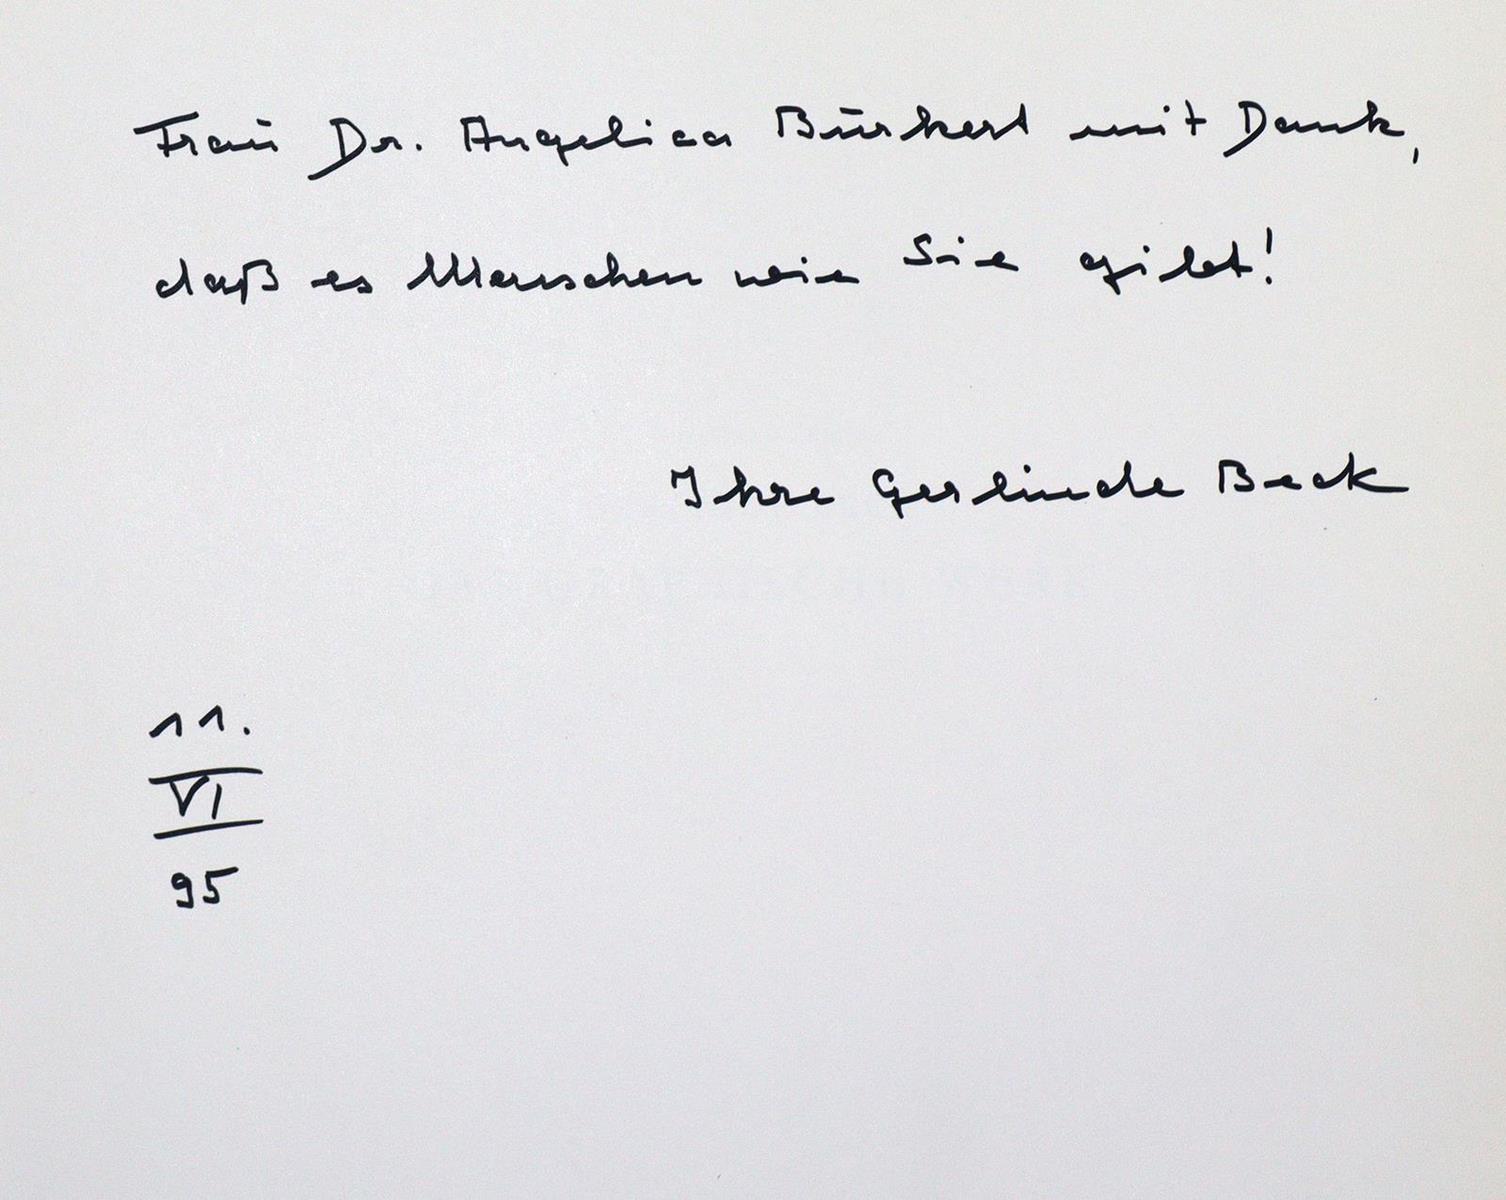 Frau Dr. Angelica Burkert mit Dank,
daß es Menschen wie Sie gibt!
Ihre Gerlinde Beck
11.
VI
95